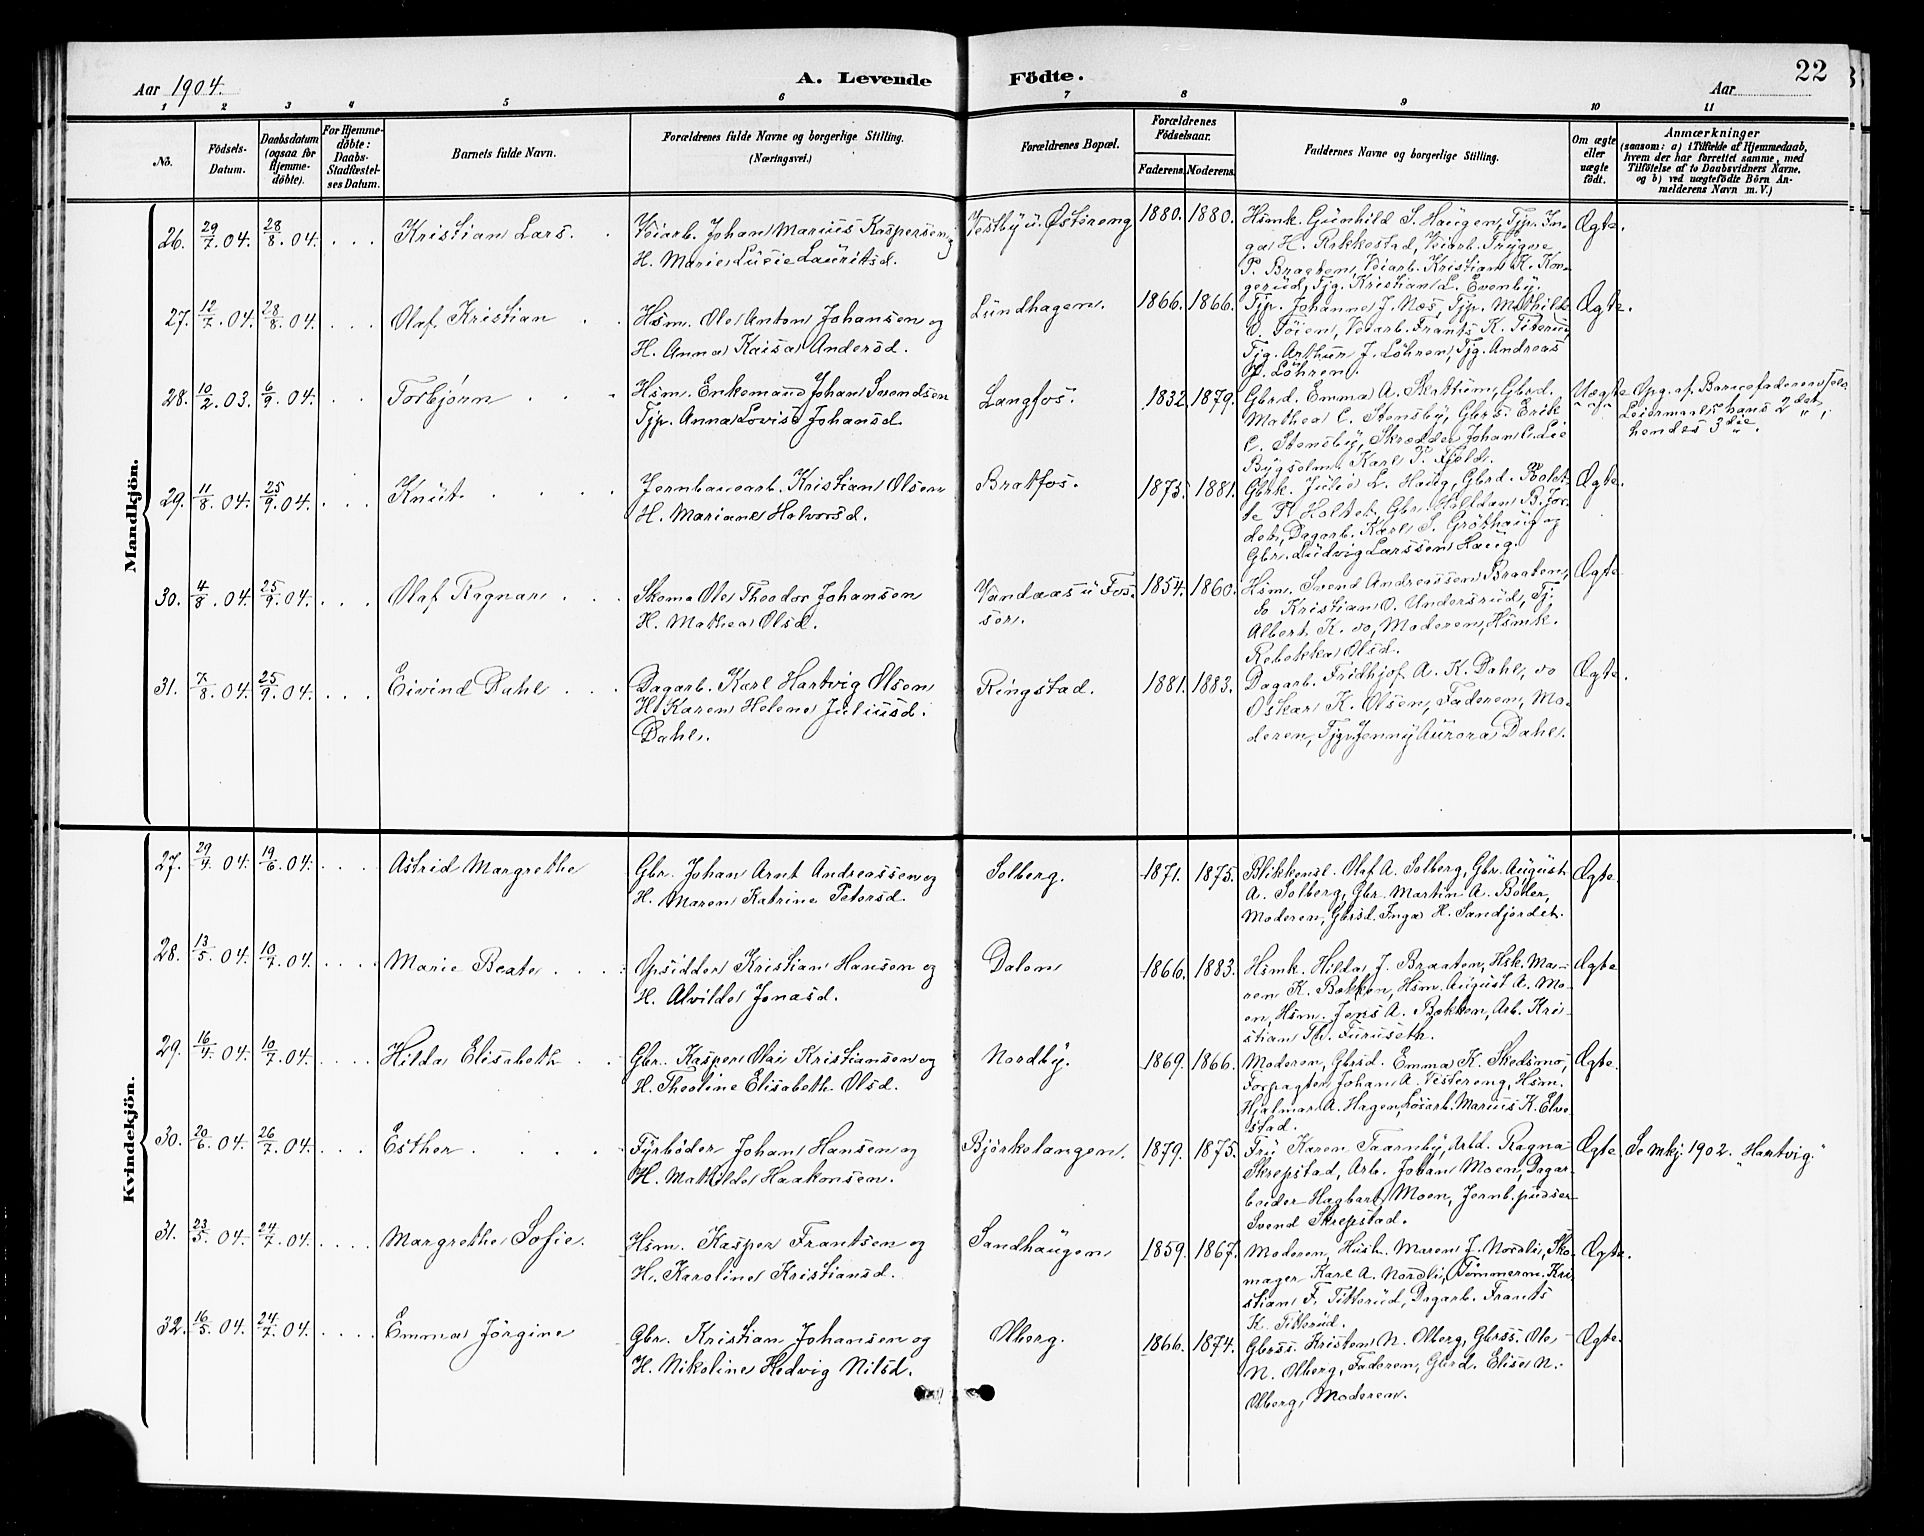 Aar 1904.
A. Levende
Födte.
22
Aar
1 2 3 4 5 6 7 8 9 10 11
No.
Födsels-
Datum.
Daabsdatum
(ogsaa for
Hjemme-
döbte).
For Hjemme-
döbte:
Daabs-
Stadfæstel-
ses Datum.
Barnets fulde Navn.
Forældrenes fulde Navne og borgerlige Stilling.
(Næringsvei.)
Forældrenes Bopæl.
Forældrenes
Födselsaar.
Faderens.
Moderens.
Faddernes Navne og borgerlige Stilling.
Om ægte
eller
uægte
födt.
Anmærkninger
(saasom: a) i Tilfælde af Hjemmedaab,
hvem der har forrettet samme, med
Tilföielse af to Daabsvidners Navne,
og b) ved uægtefödte Börn An-
melderens Navn m. V.)
Mandkjön.
26. 29/7. 04. 28/8. 04. . . . Kristian Lars. .
Veiarb. Johan Marius Kaspersen og
H. Marie Lusie Lauritsd.
Vestby u. Østøreng
1880. 1880.
Hsmk. Gunhild S. Haugen, Tjp. In-
ga H. Rakkestad, Veiarb. Trygve
P. Braaten, Veiarb. Kristian K. Kon-
gerud, Tjg. Kristian L. Evenby.
Ægte.
27. 12/7. 04. 28/8. 04. . . . Olaf Kristian . .
Hsm. Ole Anton Johansen og
H. Anna Kaisa Andersd.
Lundhagen.
1866. 1866.
Tjp. Johanne J. Næs, Tjp. Mathilde
O. Töien, Veiarb. Frants K. Titerud,
Tjg. Arthur J. Löhren, Tjg. Andreas
P. Löhren.
Ægte.
28. 10/2. 03. 6/9. 04. . . Torbjørn . . .
Hsm. Enkemand Johan Svendsen
Tjp. Anna Lovise Johansd.
Langfos.
1832. 1879.
Gbrd. Emma A. Skattum, Gbrd.
Mathea C. Stensby, Gbrs. Erik
C. Stensby, Skredder Johan C. Lie
Bygselm. Karl T. Fjeld.
Uægte
Opg. af Barnefaderen selv
Leiermaals hans 2det,
hendes 3die.
29. 11/8. 04. 25/9. 04. . . . Knut . . . .
Jernbanearb. Kristian Olsen
H. Mariane Halvorsd.
Bratfos.
1873. 1881.
Gbrk. Julie L. Haug, Gbrd.
te H. Holtet, Gbr. Halldan B. Jor-
det, Dagarb. Karl S. Gröthaug og
Gbr. Ludvig Larssen Haug.
Ægte.
30. 4/8. 04. 25/9. 04. . . . Olaf Ragnar . . .
Skoma Ole Theodor Johansen
H. Mathea Olsd.
Vandaas u Fos-
ser.
1854. 1860.
Hsm. Svend Andreassen Braaten,
do Kristian O. Undersrud, Tj.
Albert K. do, Moderen, Hsmk.
Rebekka Olsd.
Ægte
31. 7/8. 04. 25/9. 04. . . . Eivind Dahl . . .
Dagarb. Karl Hartvig Olsen
H. Karen Helene Juliusd.
Dahl.
Ringstad.
1881. 1883.
Dagarb. Fridhjof A. K. Dahl, do
Oskar K. Olsen, Faderen, Mo-
deren, Tjp. Jenny Aurora Dahl.
Ægte.
Kvindekjön.
27. 29/4. 04. 19/6. 04. . . . Astrid Margrethe
Gbr. Johan Arnt Andreassen og
H. Maren Katrine Petersd.
Solberg.
1871. 1875.
Blikkensl. Olaf A. Solberg, Gbr. August
A. Solberg, Gbr. Martin A. Böler,
Moderen, Gbrsd. Inga H. Sandjordet.
Ægte.
28. 13/5. 04. 10/7. 04. . . . . Marie Beate . . .
Opsidder Kristian Hansen og
H. Alvilde Jonasd.
Dalen
1866. 1883.
Hsmk. Hilda J. Braaten, Hsk. Ma-
ren K. Bakken, Hsm. August A. Mo-
en, Hsm. Jens A. Bakken, Arb. Kri-
stian Th. Furuseth.
Ægte
29. 16/4. 04. 10/7. 04. . . . . Hilda Elisabeth . .
Gbr. Kasper Olai Kristiansen og
H. Theoline Elisabeth Olsd.
Nordby.
1869. 1866.
Moderen, Gbrsd. Emma K. Skedsmo,
Forpagter Johan A. Vestereng, Hsm.
Hjalmar A. Hagen, Lösarb. Marius K. Elve-
stad.
Ægte.
30. 20/6. 04. 26/7. 04. . . . Esther . . . .
Fyrböder Johan Hansen og
H. Mathilde Haakonsen.
Bjørkelangen.
1879. 1875.
Fru Karen Taarnby, Ragna
Skrepstad, Arb. Johan Moen, Dagar-
beider Hagbart Moen, Jernb. pudser
Svend Skrepstad.
Ægte.
Se mkj. 1902. "Hartvig."
31. 23/5. 04. 24/7. 04. . . . . Margrethe Sofie.
Hsm. Kasper Frantsen og
H. Karoline Kristiansd.
Sandhaugen
1859. 1867.
Moderen, Hustr. Maren J. Nordli, Sko-
mager Karl A. Nordli, Tömmerm. Kri-
stian F. Titterud, Dagarb. Frants
K. Titterud.
Ægte.
32. 16/5. 04. 24/7. 04. . . . . Emma Jörgine
Gbr. Kristian Johansen og
H. Nikoline Hedvig Nilsd.
Olberg.
1866. 1874.
Gbrss. Kristen N. Olberg, Gbrss. Ole
N. Olberg, Faderen, Gbrd. Elise N.
Olberg, Moderen.
Ægte.